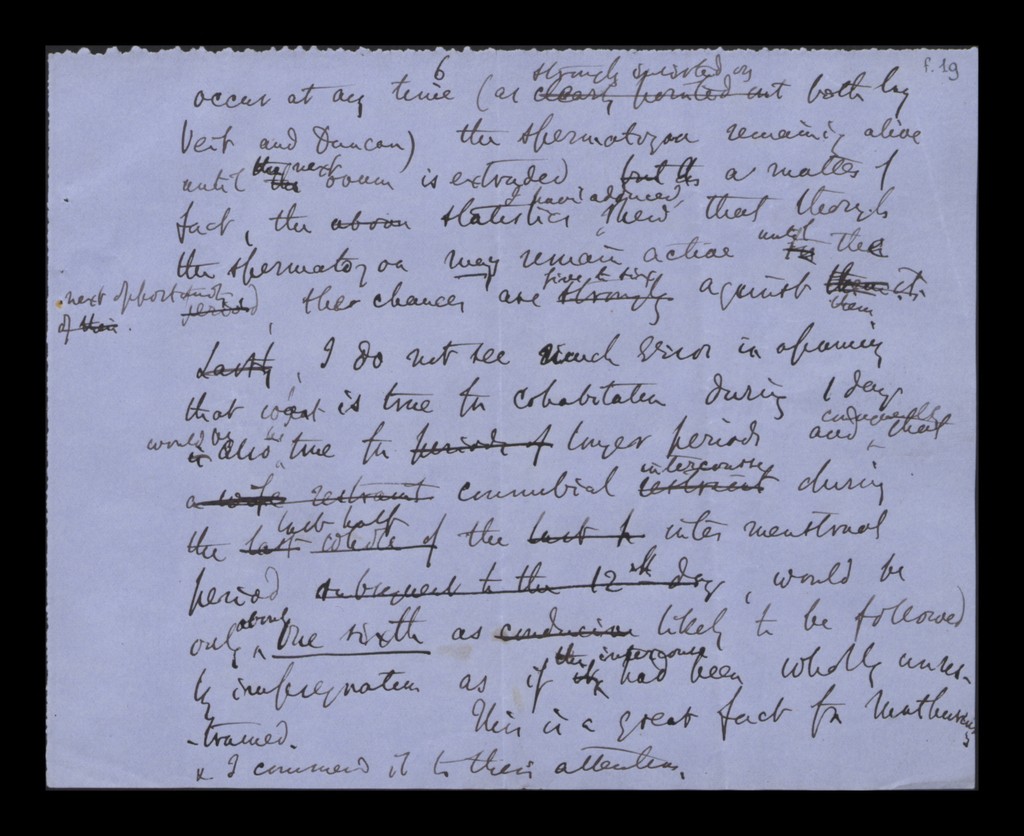 6
f. 19
strongly insisted on
occur at any time (as clearly pointed out both by
Veit and Duncan) the spermatozoa remaining alive
the next
until the ovum is extruded but as a matter of
I have adduced,
fact, the above statistics shew that though
until
the spermatozoa may remain active the
five to six
next opportunity period, their chances are strongly against them it.
of their. them
Lastly, I do not see much error in assuming
that what is true for cohabitation during 1 day
would be also true for periods of longer periods and consequently that
intercourse
a wife restraint connubial restraint during
last half
the last whole of the last h inter menstrual
period subsequent to the 12th day, would be
about
only one sixth as conducive likely to be followed
the intercourse
by impregnation as if had been wholly unres-
-trained. This is a great fact for Malthusians
& I commend it to their attention.